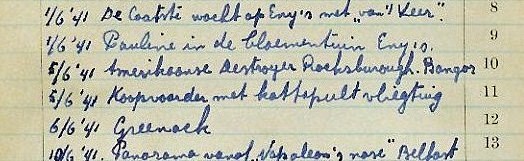 1/6 '41 De Laatste wacht op Eny's met „van 't Veer". 8
1/6 '41 Pauline in de bloementuin Eny's. 9
5/6 '41 Amerikaanse Destroyer Rocksburough. Bangor 10
5/6 '41 Koopvaarder met kattapult vliegtuig 11
6/6 '41 Greenock 12
10/6 '41. Panorama vanaf „Napoleon's nose" Belfast 13